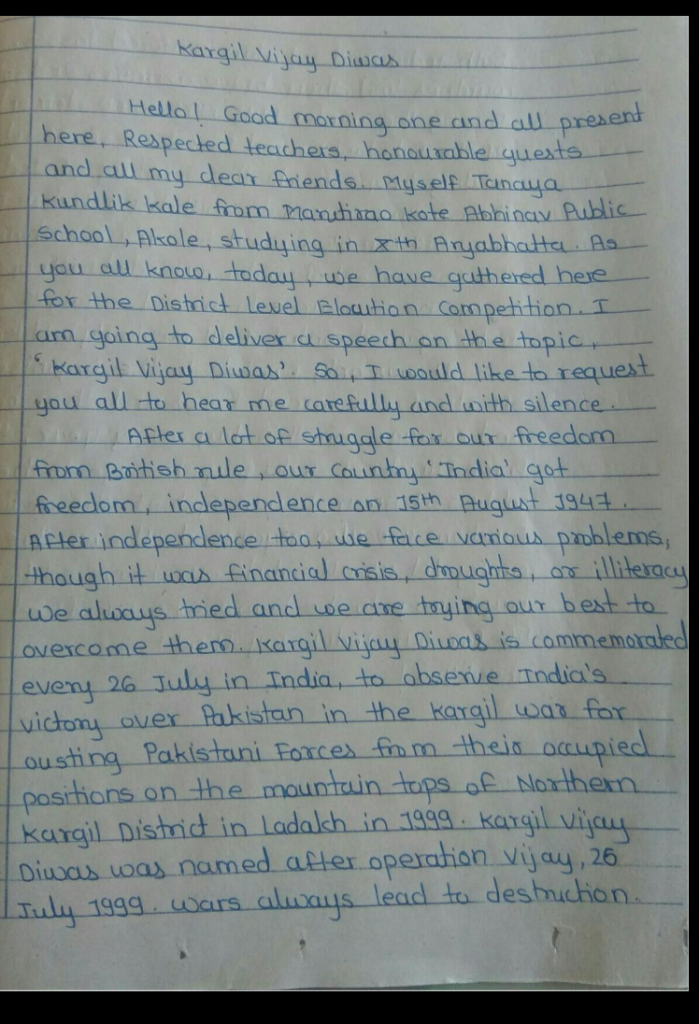 Kargil Vijay Diwas
Hello! Good morning one and all present
here, Respected teachers, honourable guests
and all my dear friends. Myself Tanaya
Kundlik Kale from Marutirao Kote Abhinav Public
School, Akole, studying in Xth Aryabhatta. As
you all know, today, we have gathered here
for the District level Elocution Competition. I
am going to deliver a speech on the topic,
'Kargil Vijay Diwas'. So, I would like to request
you all to hear me carefully and with silence.
After a lot of struggle for our freedom
from British rule, our country 'India' got
freedom, independence on 15th August 1947.
After independence too, we face various problems,
though it was financial crisis, droughts, or illiteracy
we always tried and we are trying our best to
overcome them. Kargil Vijay Diwas is commemorated
every 26 July in India, to observe India's
victory over Pakistan in the Kargil war for
ousting Pakistani Forces from their occupied
positions on the mountain tops of Northern
Kargil District in Ladakh in 1999. Kargil Vijay
Diwas was named after operation Vijay, 26
July 1999. Wars always lead to destruction.